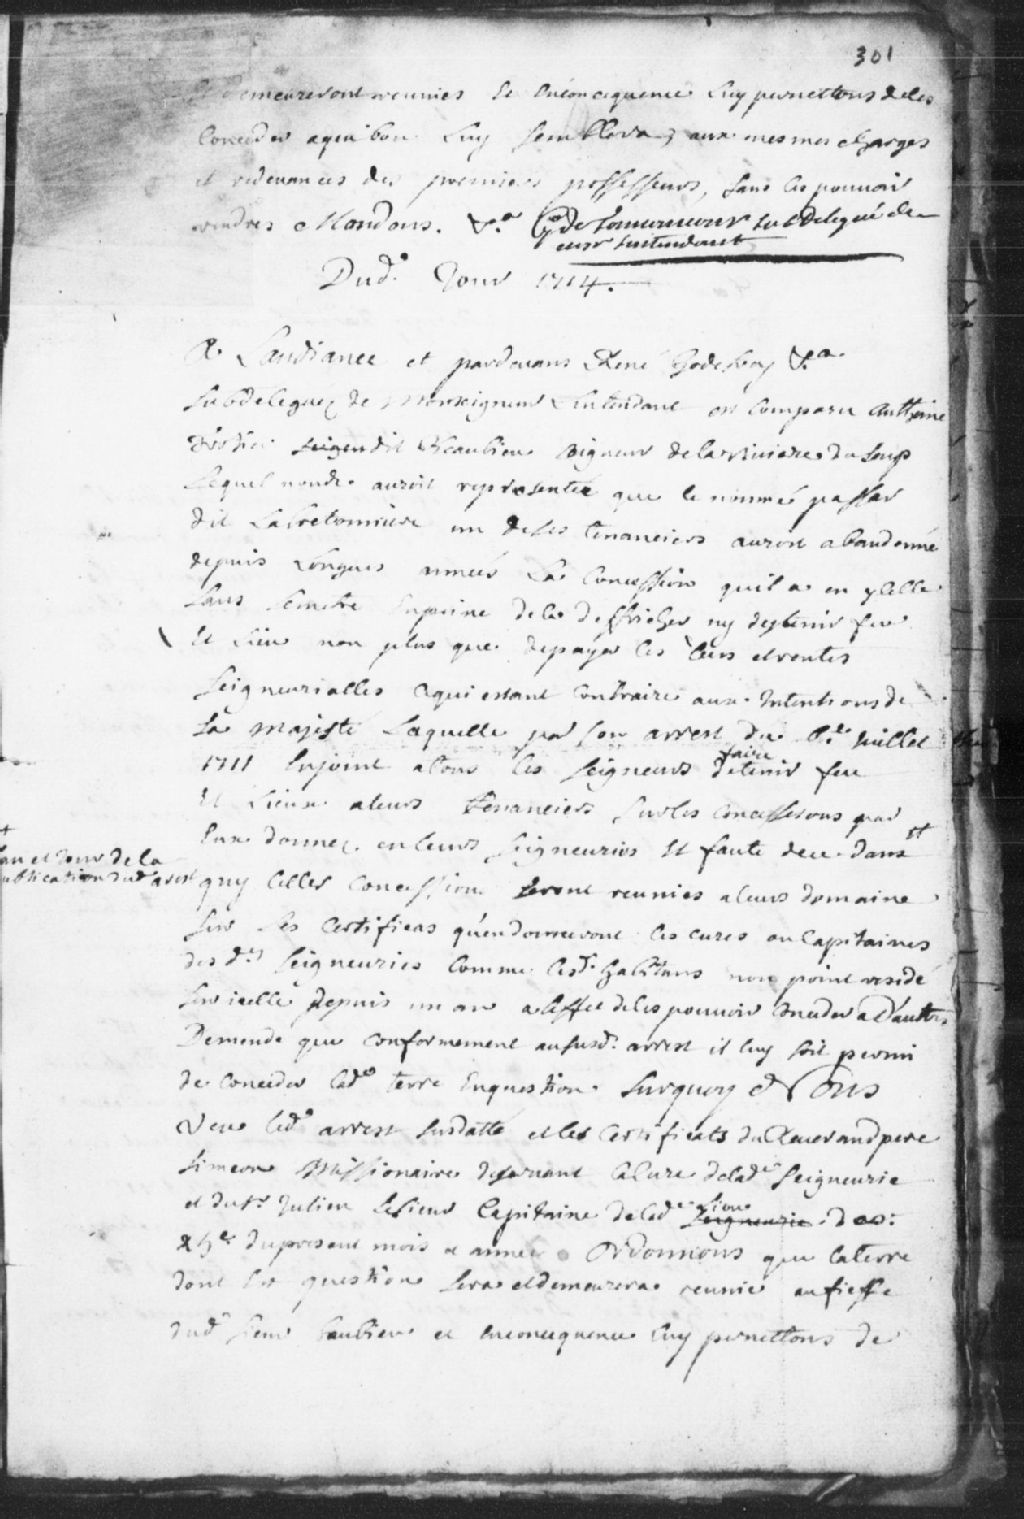 301
demeureront reunies Et Enconcequence Luy permettons de les
Conceder a qui bon Luy Semblera, aux mesmes charges
et redevances des premiers possesseurs, sans les pouvoir
vendre. Mandons. &.a subdelegué de
mr Lintendant
Dud.t Jour 1714.
A Laudiance et pardevant René Godefroy &.a
Subdelegué de Monseigneur Lintendant est Comparu Anthoine
dit Beaubien seigneur de la Riviere Du Loup
Lequel nous auroit representée que le nommé
dit un de ses tenanciers auroit abandonné
depuis Longues années La Concession quil a en ycelle
Sans Semetre Enpeine de la deffricher ny dy tenir feu
Et Lieu non plus que de payer les Cens et rentes
Seigneurialles Cequi estant Contraire aux Intentions de
Sa Majesté Laquelle par Son arrest du 6.e Juillet
1711 Enjoint atous les Seigneurs de faire tenir feu
Et Lieux aleurs tenanciers Surles Concessions par
Eux donnez. en leurs Seigneuries Et faute dece dans
+
lan et Jour de la
publication dud arest
quoy Celles Concessions Seront reunies aleurs domaine
Sur Les Certificas qu'endonneront les cures ou Capitaines
des d.es Seigneuries Comme les d. habitans nont point residé
Sur icelle depuis un an a leffet deles pouvoir Conceder a d'autres
Demende que Conformement aususd. arrest il luy soit permi
de Conceder lad.e terre Enquestion. Surquoy Nous
Veu led.t arrest susdatté et les Certificats du Reverand pere
Simeon Missionaire deservant la Cure de lad.e Seigneurie
et du Sr Julien Lesieur Capitaine de lad.e Lieu Seigneurie
du present mois et année Ordonnons que la terre
dont Est question Sera et demeurera reunie au fieffe
dud. Sieur Beaubien et enconcequence Luy permettons de